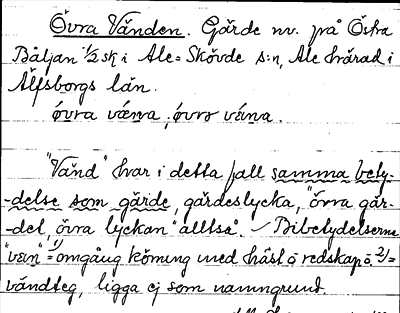 Övra Vänden. Gärde nv. på Östra
Båljan 1/2 sk i Ale-Skövde s:n, Ale härad i
Älfsborgs län.
övra væna, övrə véna.
"Vänd" har i detta fall samma bety-
-delse som gärde, gärdeslycka, "övra gär-
-det, övra lyckan" alltså. Bibetydelserna
"vein" 1) = omgång körning med häst o redskap o. 2) =
vändteg, ligga ej som namngrund.